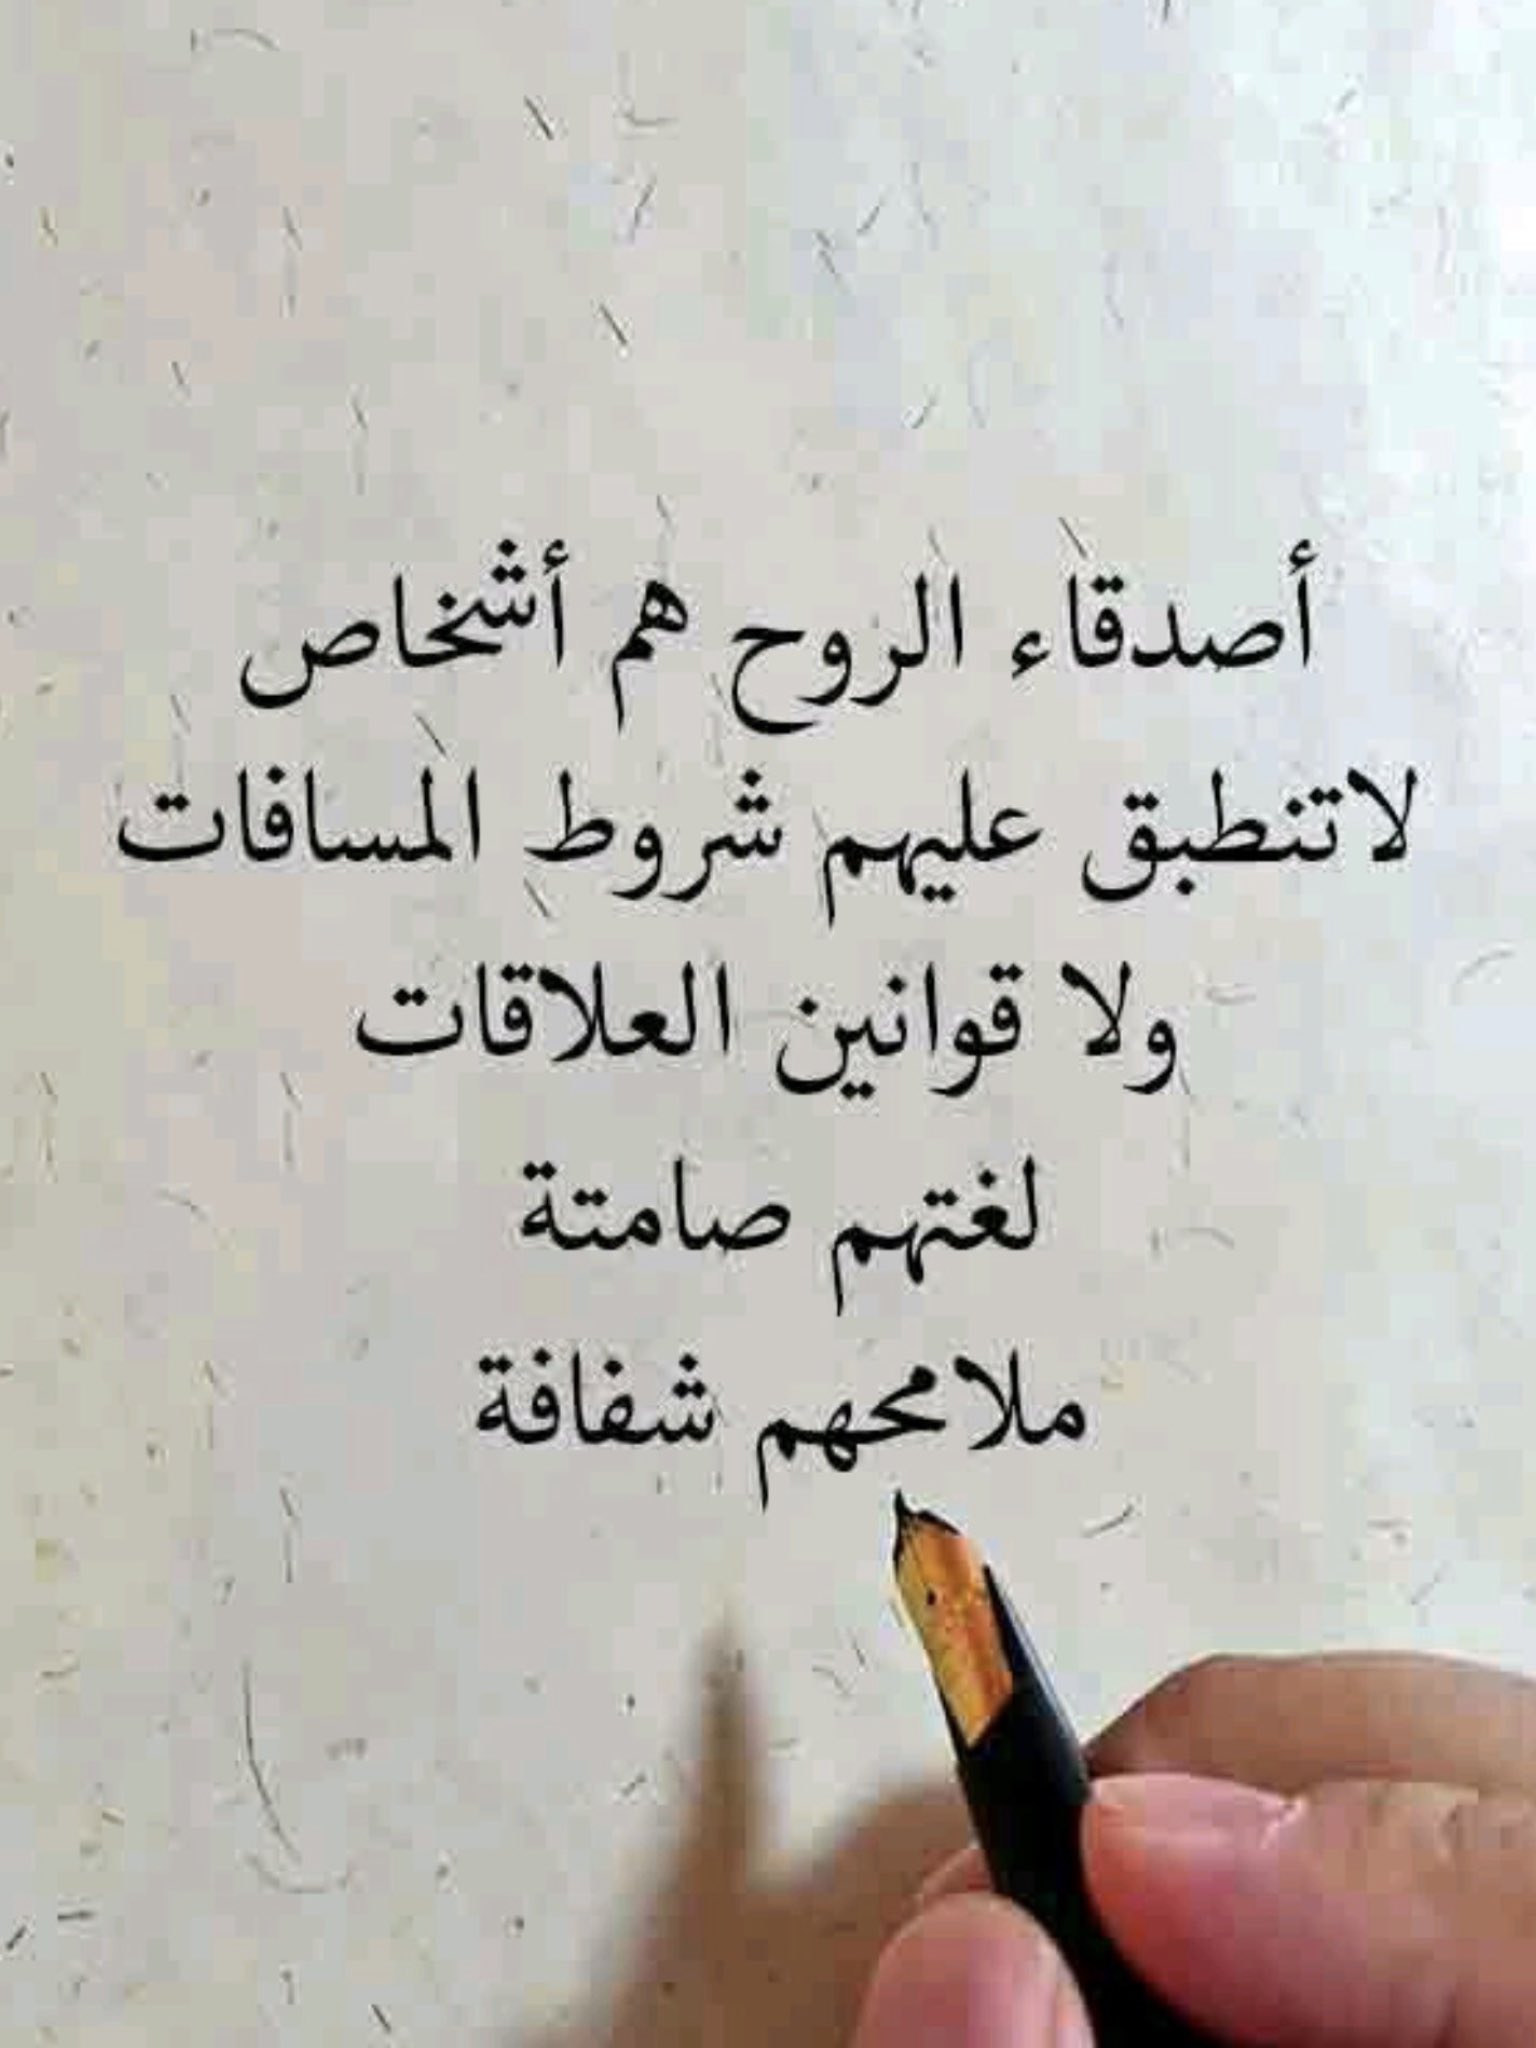 أصدقاء الروح هم أشخاص
لاتنطبق عليهم شروط المسافات
ولا قوانين العلاقات
لغتهم صامتة
ملامحهم شفافة